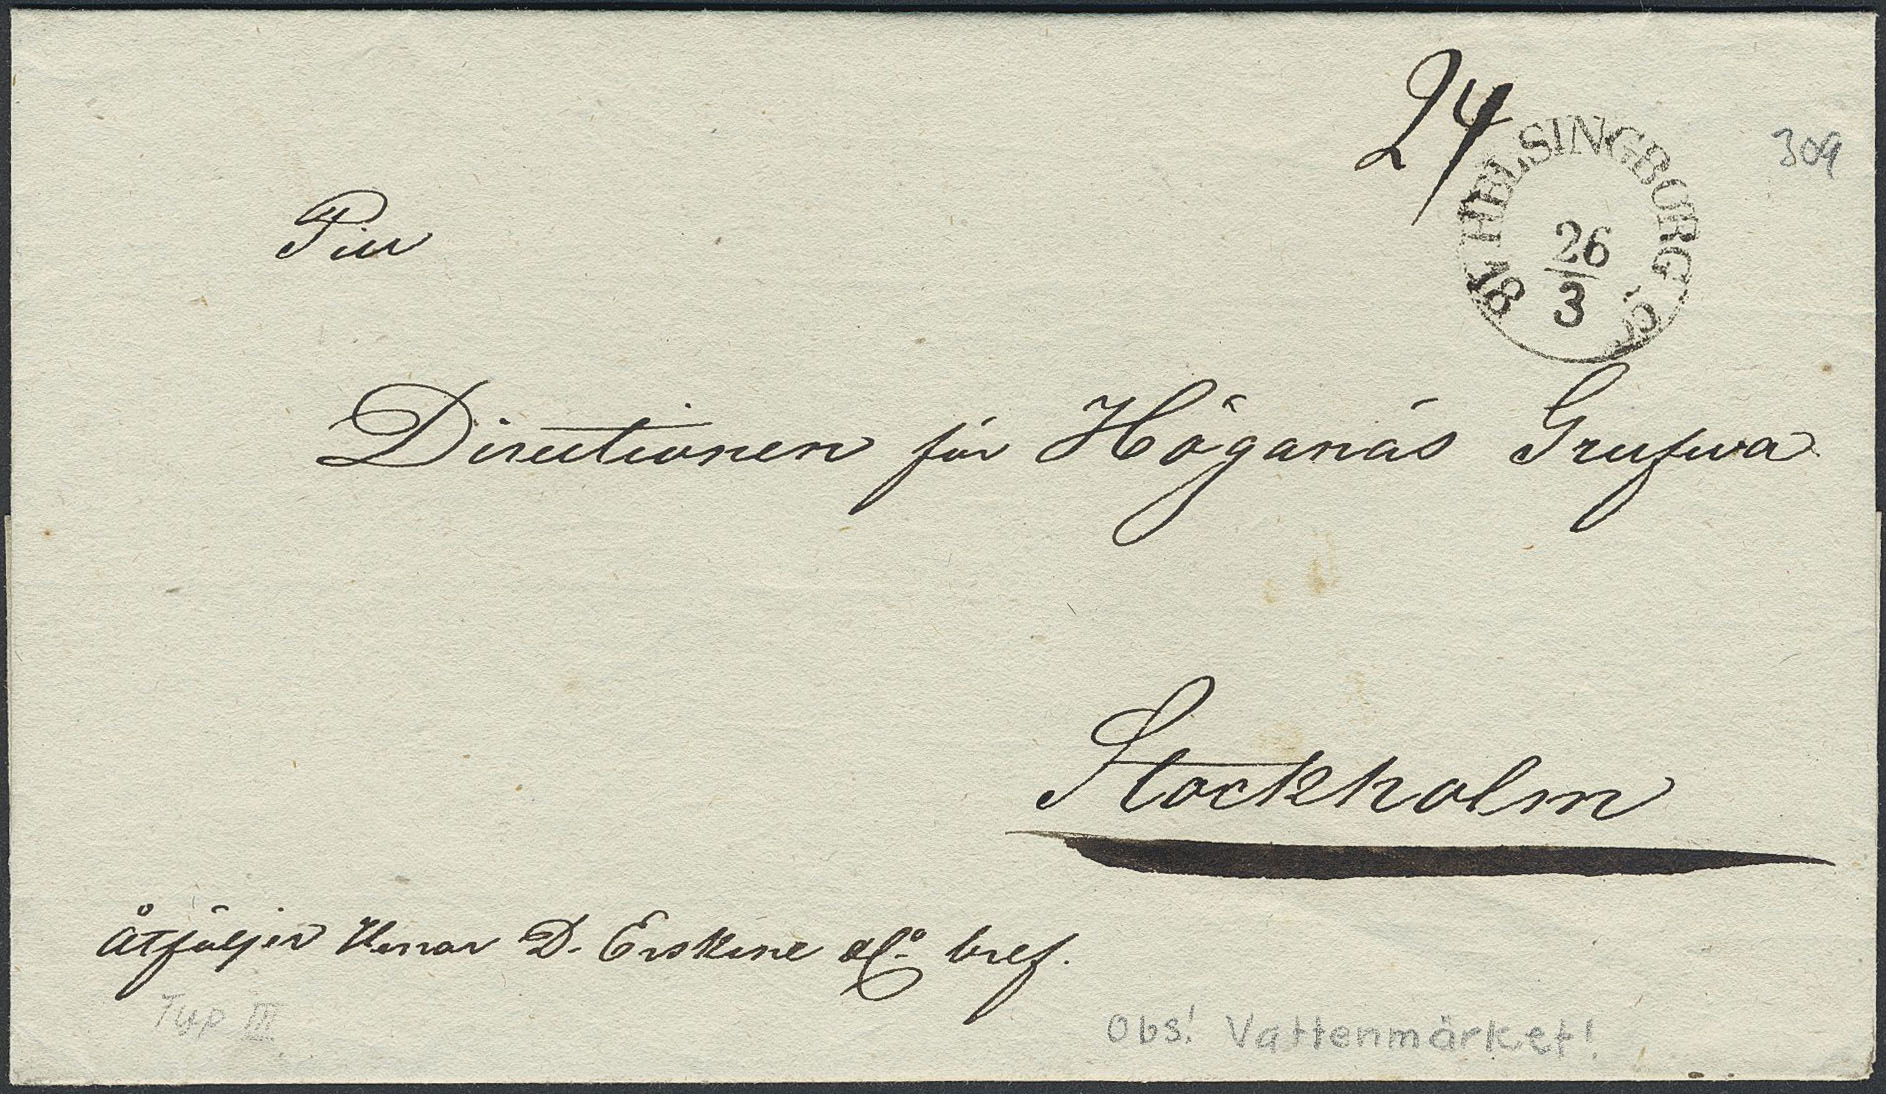 24
309
HELSINGBORG
26
3
18
Till
Directionen för Höganäs Grufwa
Stockholm
åtföljer Herrar D. Erskine & Co bref.
Typ III
Obs! Vattenmärket!